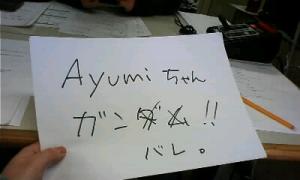 Ayumiちゃん
ガンダム!!
バレ。